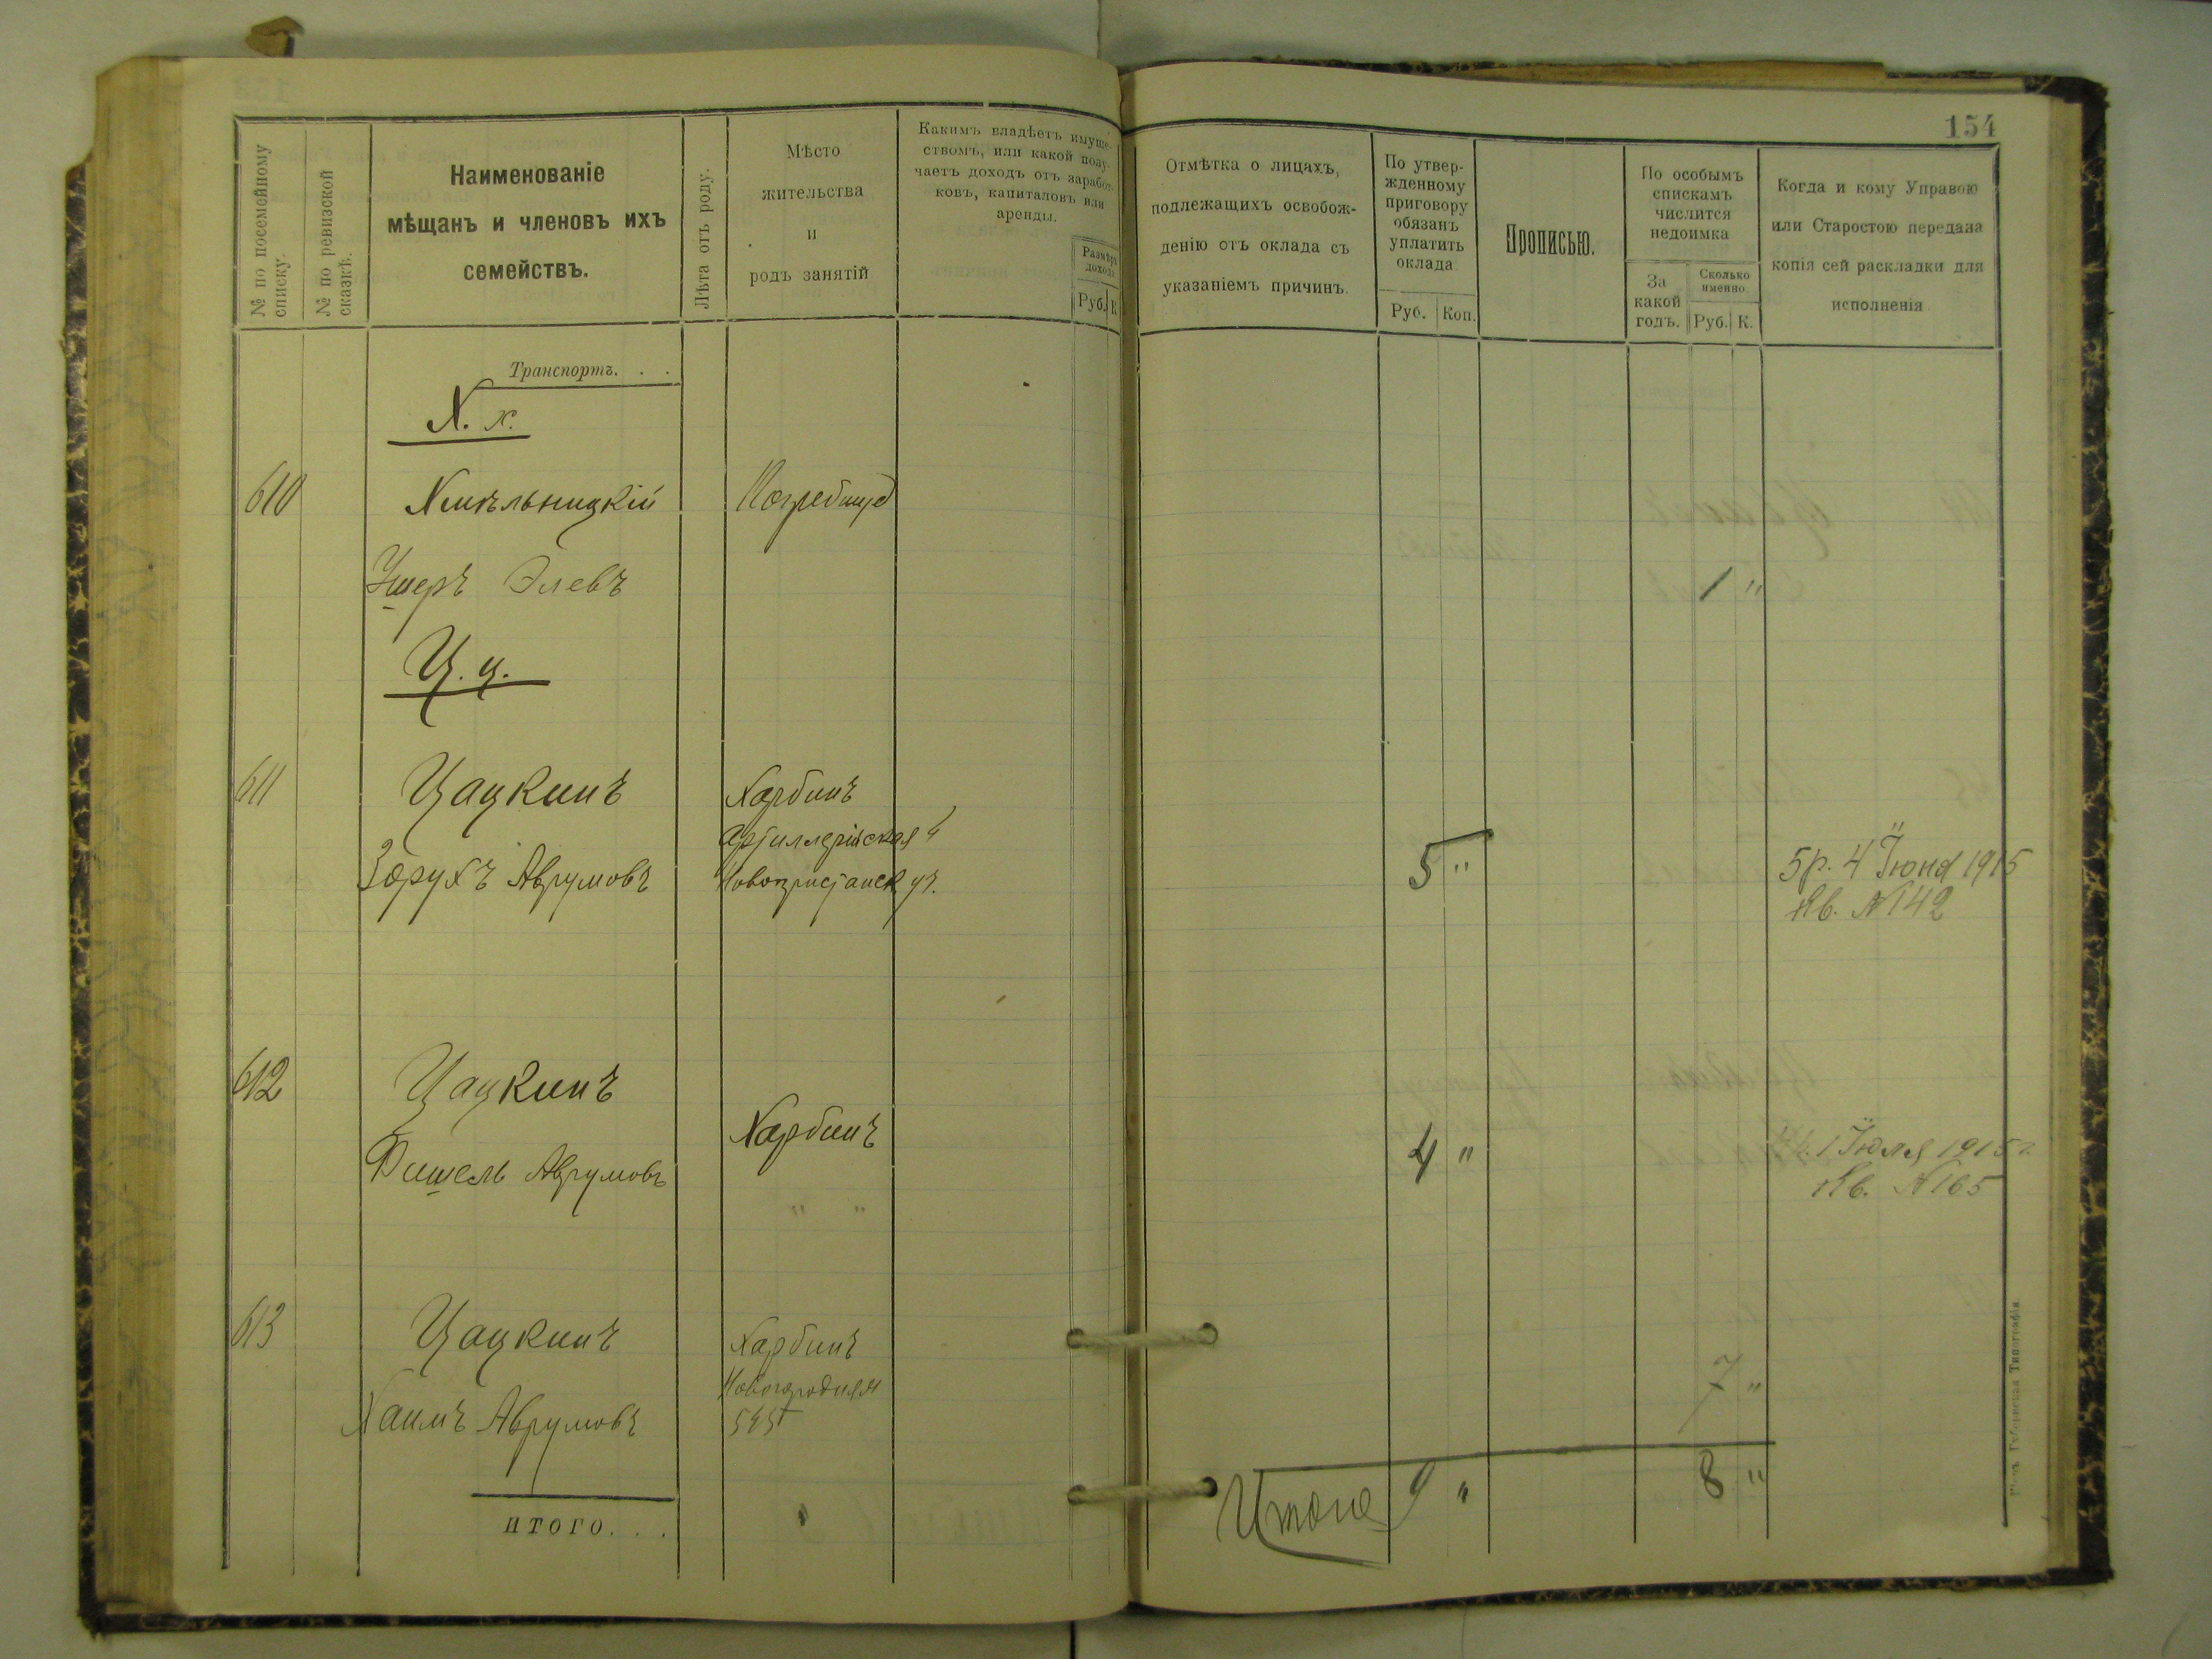 154
№ по посемейному списку.
№ по ревизской сказкѣ.
Наименованіе
мѣщанъ и членовъ ихъ
семействъ.
Лѣта отъ роду.
Мѣсто
жительства
и
родъ занятій
Какимъ владѣетъ имуще-
ствомъ, или какой полу-
чаетъ доходъ отъ заработ-
ковъ, капиталовъ или
аренды.
Размѣръ
дохода
Руб. К
Отмѣтка о лицахъ,
подлежащихъ освобож-
денію отъ оклада съ
указаніемъ причинъ.
По утвер-
жденному
приговору
обязанъ
уплатить
оклада.
Руб. Коп.
Прописью.
По особымъ
спискамъ
числится
недоимка
За
какой
годъ.
Сколько
именно.
Руб. К.
Когда и кому Управою
или Старостою передана
копія сей раскладки для
исполненія
Транспортъ. . .
Х. х.
610 Хмѣльницкій Погребище
Ушеръ Элевъ 1 "
Ц. ц.
611 Цацкинъ Харбинъ
Артиллерійская
Зорухъ Аврумовъ Новопристанск ул. 5 " 5 р. 4 Іюня 1915
Кв. №142
612 Цацкинъ
Харбинъ
Фишель Аврумовъ 4 " 1 Іюля 1915 г.
Кв. №165
613 Цацкинъ Харбинъ
Новогородняя
Хаимъ Аврумовъ 7 "
ИТОГО. . .
Итого 9 " 8 "
Губернская Типографія